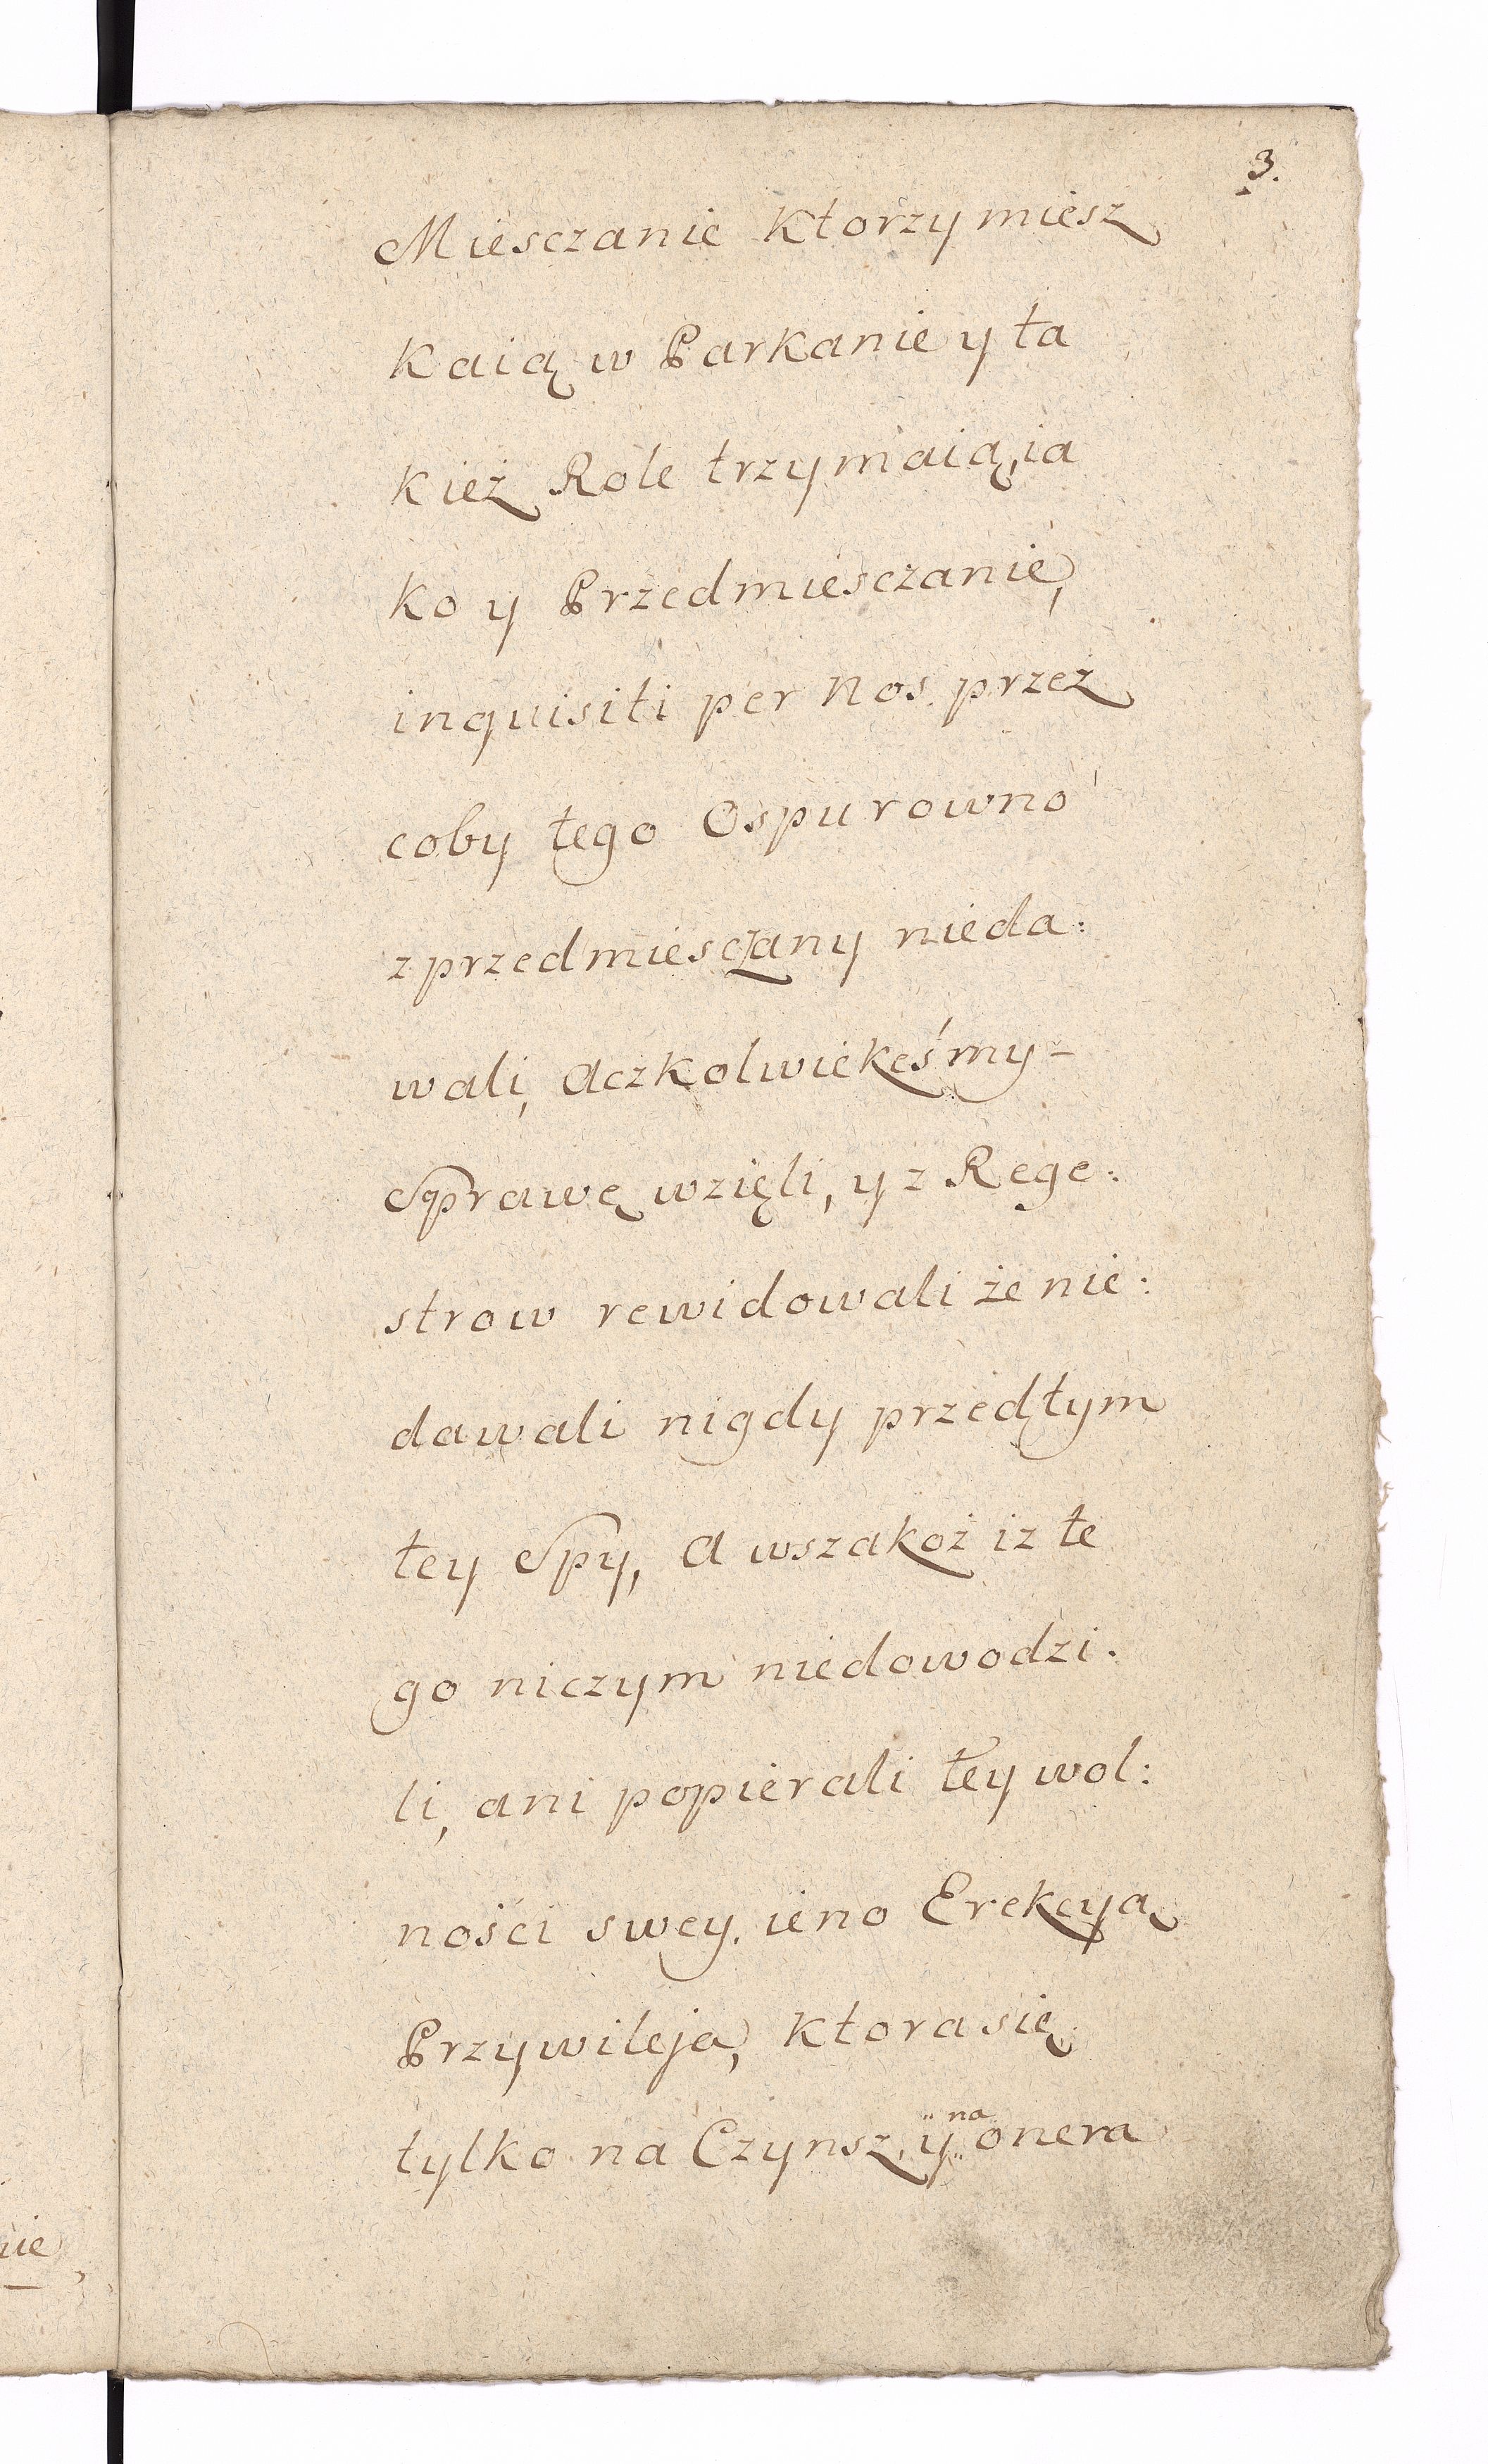 3.
Miesczanie Ktorzy miesz
Kaią w Parkanie y ta
Kież Role trzymaią, ia
Ko y Przedmiesczanie,
inquisiti per Nos. przez
coby tego Ospu rowno
z przedmiesczany nieda:
wali, Aczkolwiekeśmy-
Sprawę wzięli, y z Rege:
strow rewidowali że nie:
dawali nigdy przedtym
tey Spy, A wszakoż iz te
go niczym niedowodzi.
li, ani popierali tey wol:
ności swey. ieno Erekcyą
Przywileja, Ktora się
tylko na Czynsz, ÿ na onera
nie,